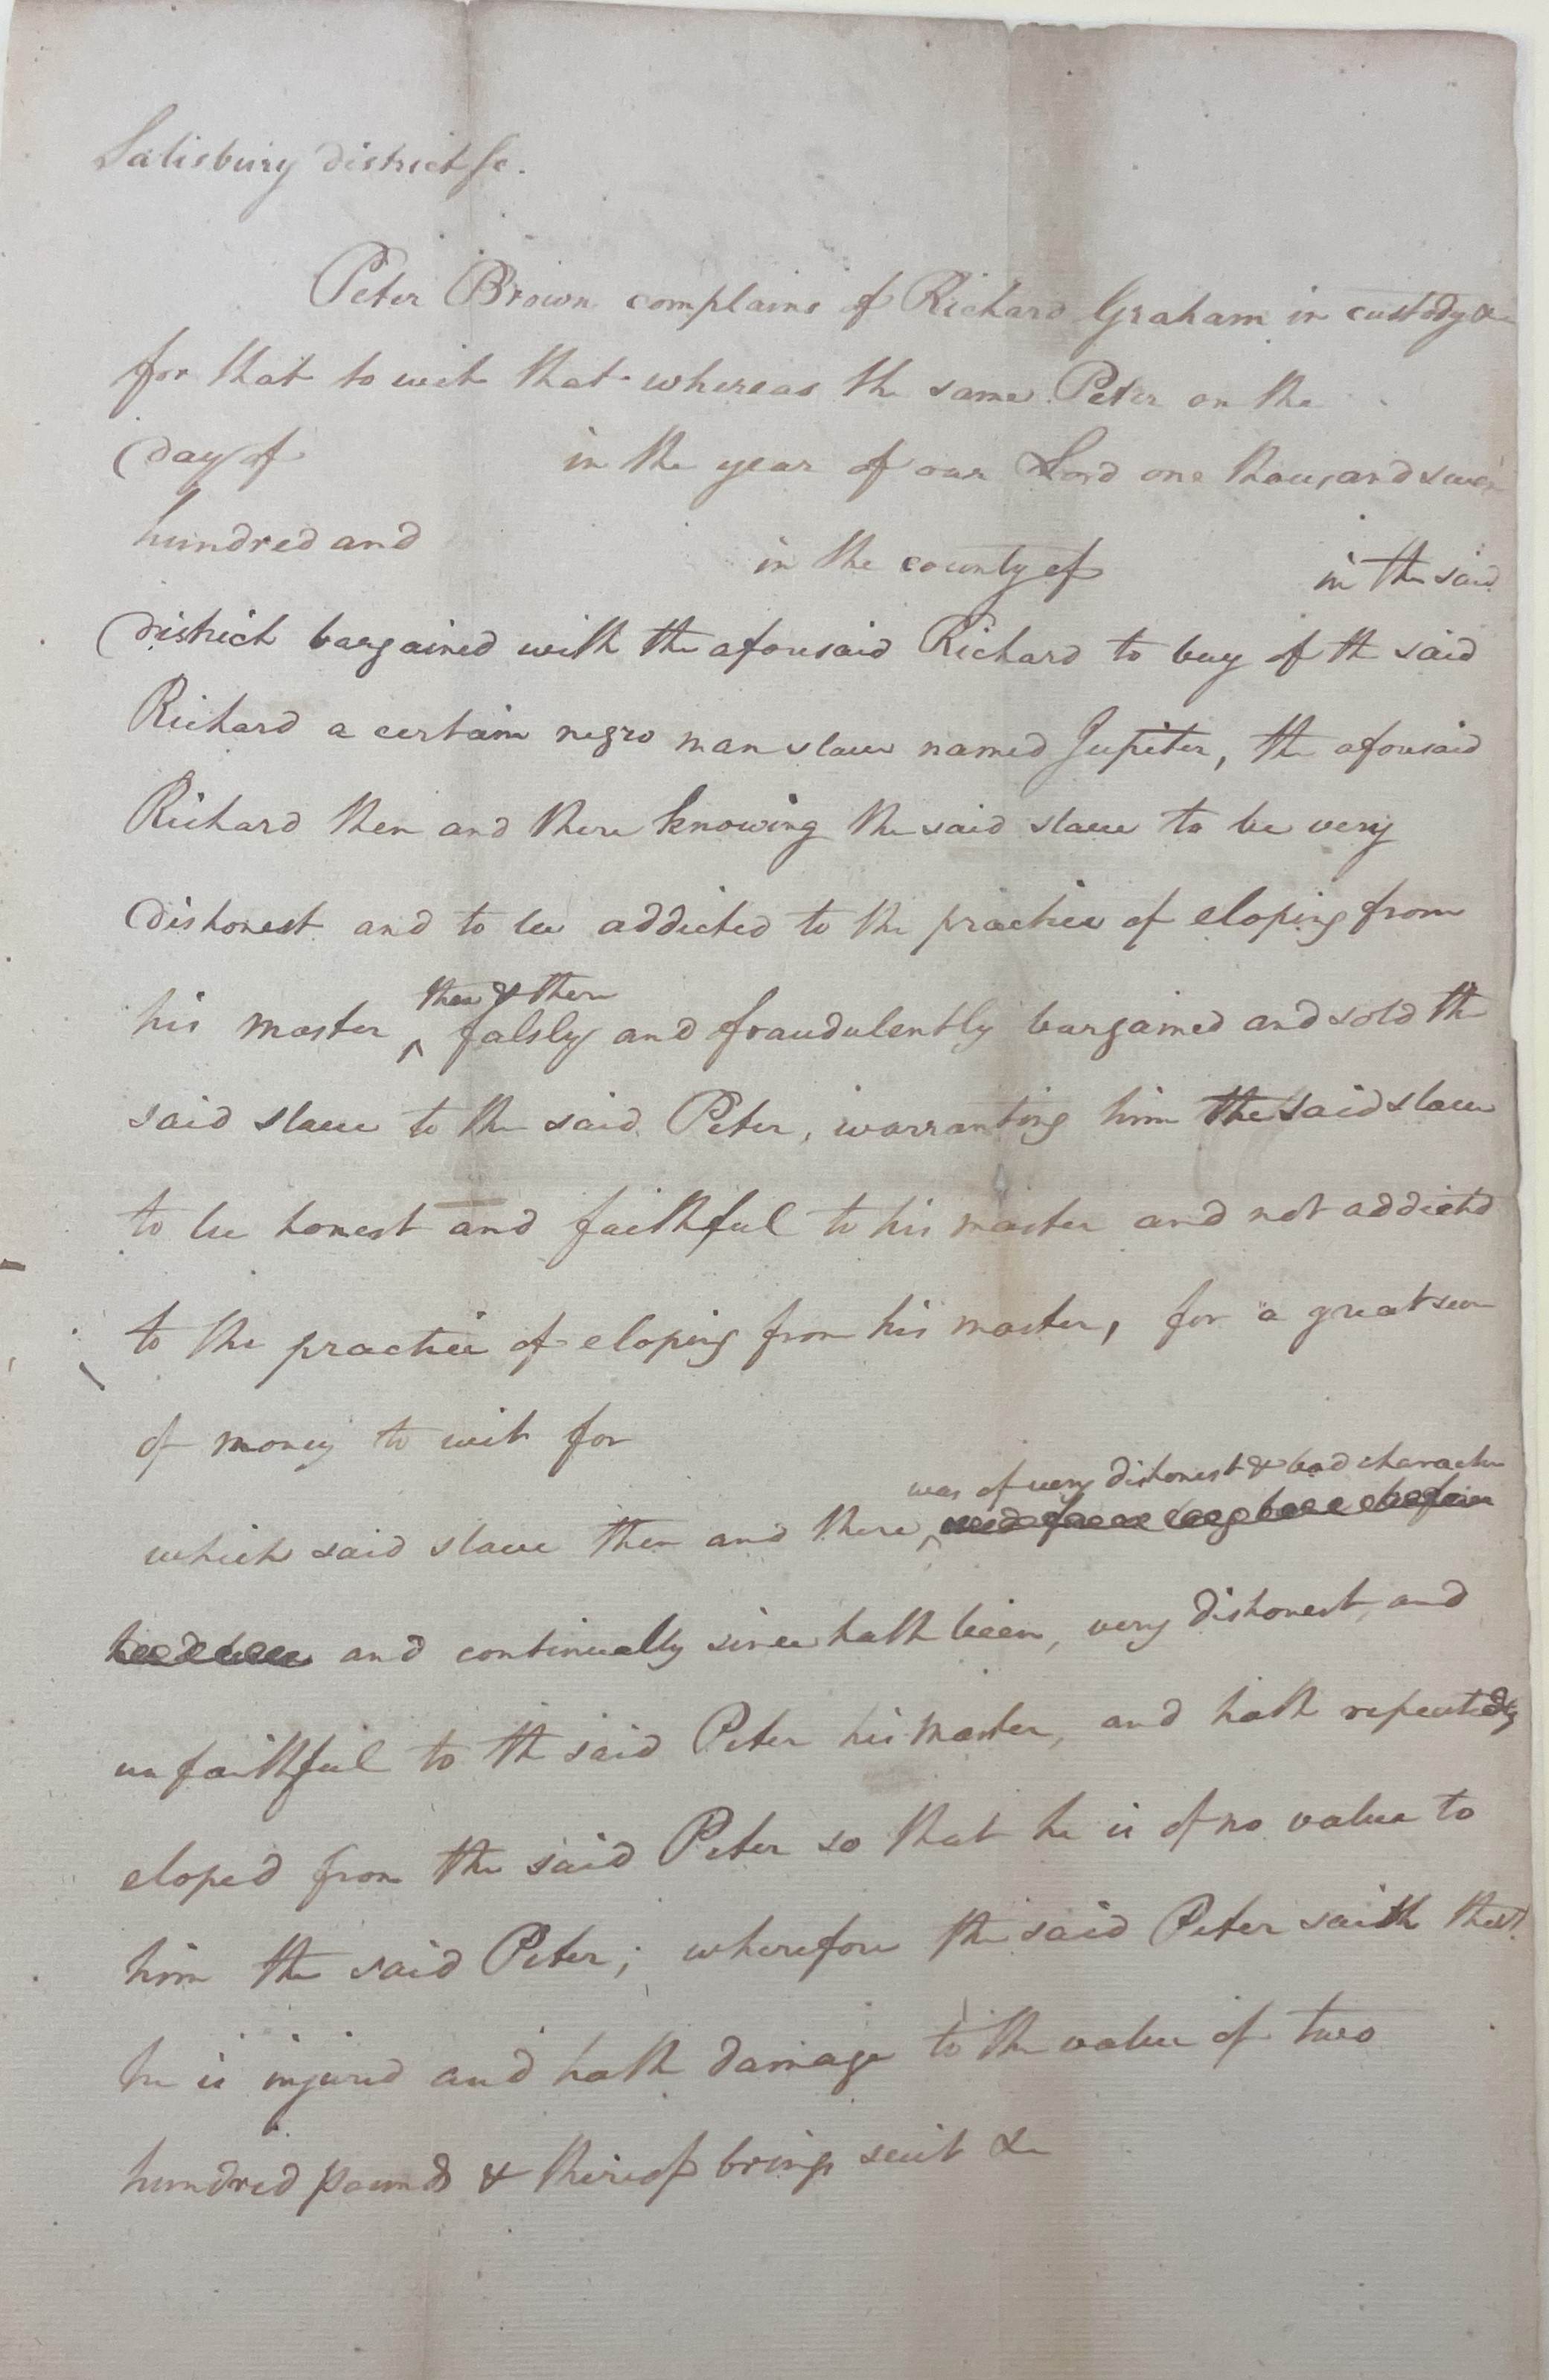 Salisbury district sc.
Peter Brown complains of Richard Graham in custody &c
for that to wit that whereas the same Peter on the
day of in the year of our Lord one thousand seven
hundred and in the county of in the said
district bargained with the aforesaid Richard to buy of the said
Richard a certain negro man slave named Jupiter, the aforesaid
Richard then and there knowing the said slave to be very
dishonest and to be addicted to the practice of eloping from
then & there
his master ^ falsly and fraudulently bargained and sold the
said slave to the said Peter, warranting him the said slave
to be honest and faithful to his master and not addicted
to the practice of eloping from his master, for a great sum
of money to wit for
was of very dishonest & bad character
which said slave then and there ^
and continually since hath been, very dishonest and
unfaithful to the said Peter his master, and hath repeatedly
eloped from the said Peter so that he is of no value to
him the said Peter; wherefore the said Peter saith that
he is injured and hath damage to the value of two
hundred pounds & thereof brings suit &c